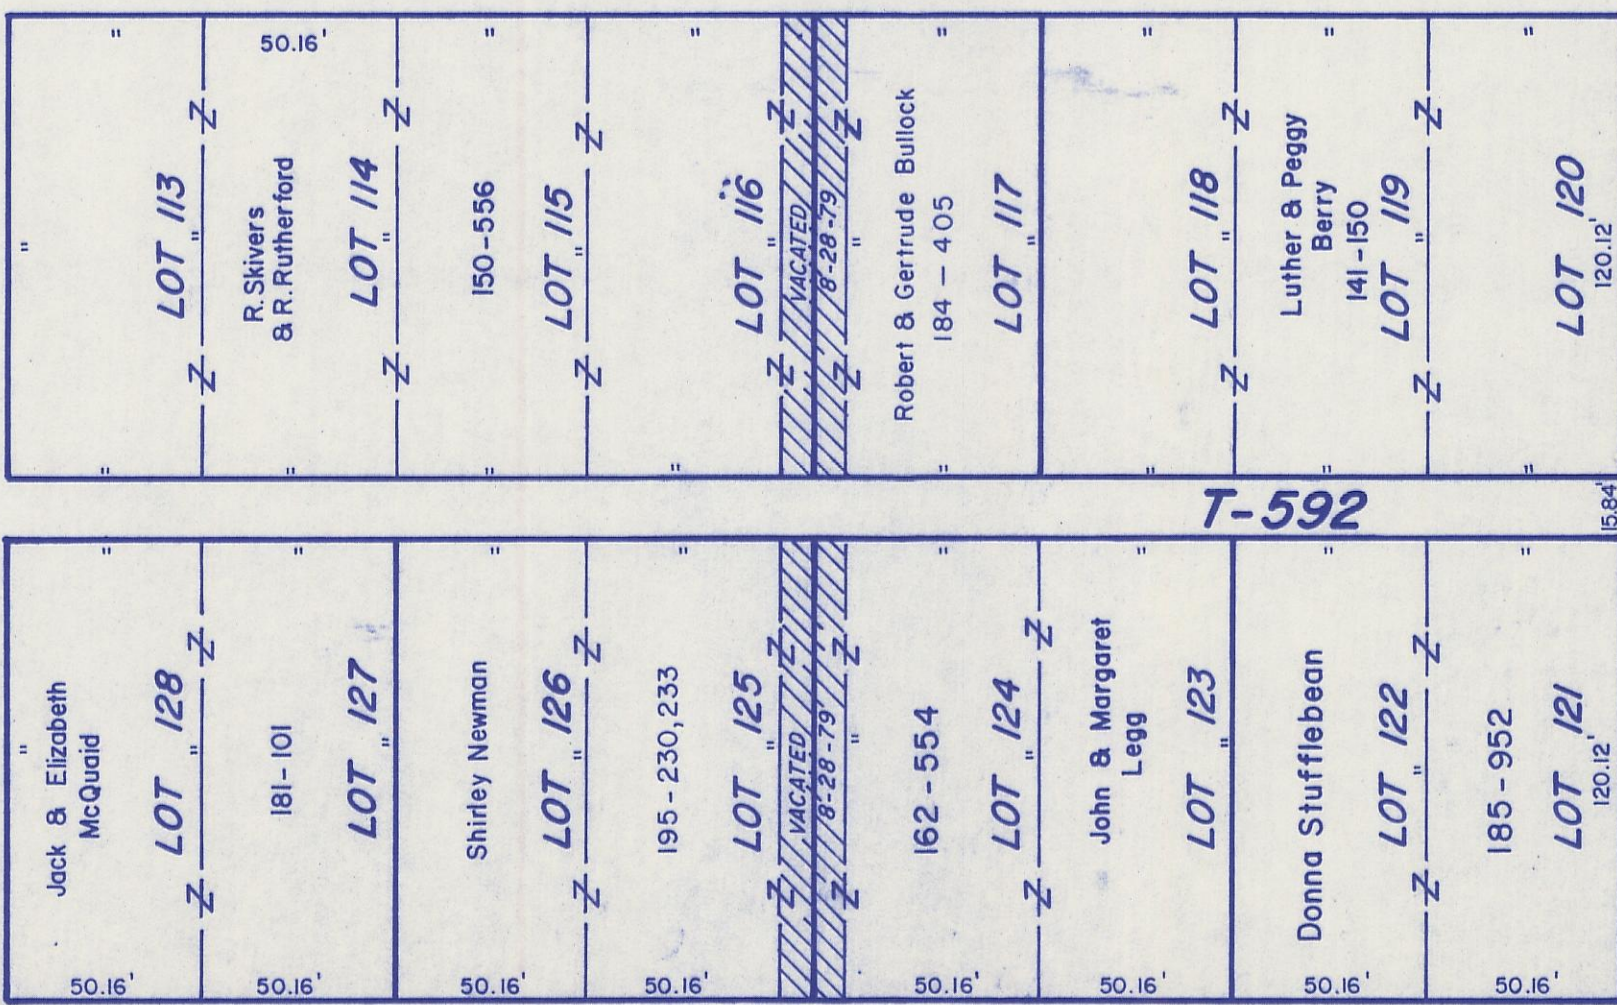 "
50.16'
"
"
"
"
"
"
LOT 113
"
R. Skivers
& R. Rutherford
LOT 114
"
150-556
LOT 115
"
LOT 116
"
VACATED
8-28-79
"
Robert & Gertrude Bullock
184-405
LOT 117
"
LOT 118
"
Luther & Peggy
Berry
141-150
LOT 119
"
LOT 120
120.12'
"
"
"
"
"
"
"
"
T-592
15.84'
"
"
"
"
"
"
"
"
"
Jack & Elizabeth
McQuaid
LOT 128
"
181-101
LOT 127
"
Shirley Newman
LOT 126
"
195-230,233
LOT 125
"
VACATED
8-28-79
"
162-554
LOT 124
"
John & Margaret
Legg
LOT 123
"
Donna Stufflebean
LOT 122
"
185-952
LOT 121
120.12'
50.16'
50.16'
50.16'
50.16'
50.16'
50.16'
50.16'
50.16'